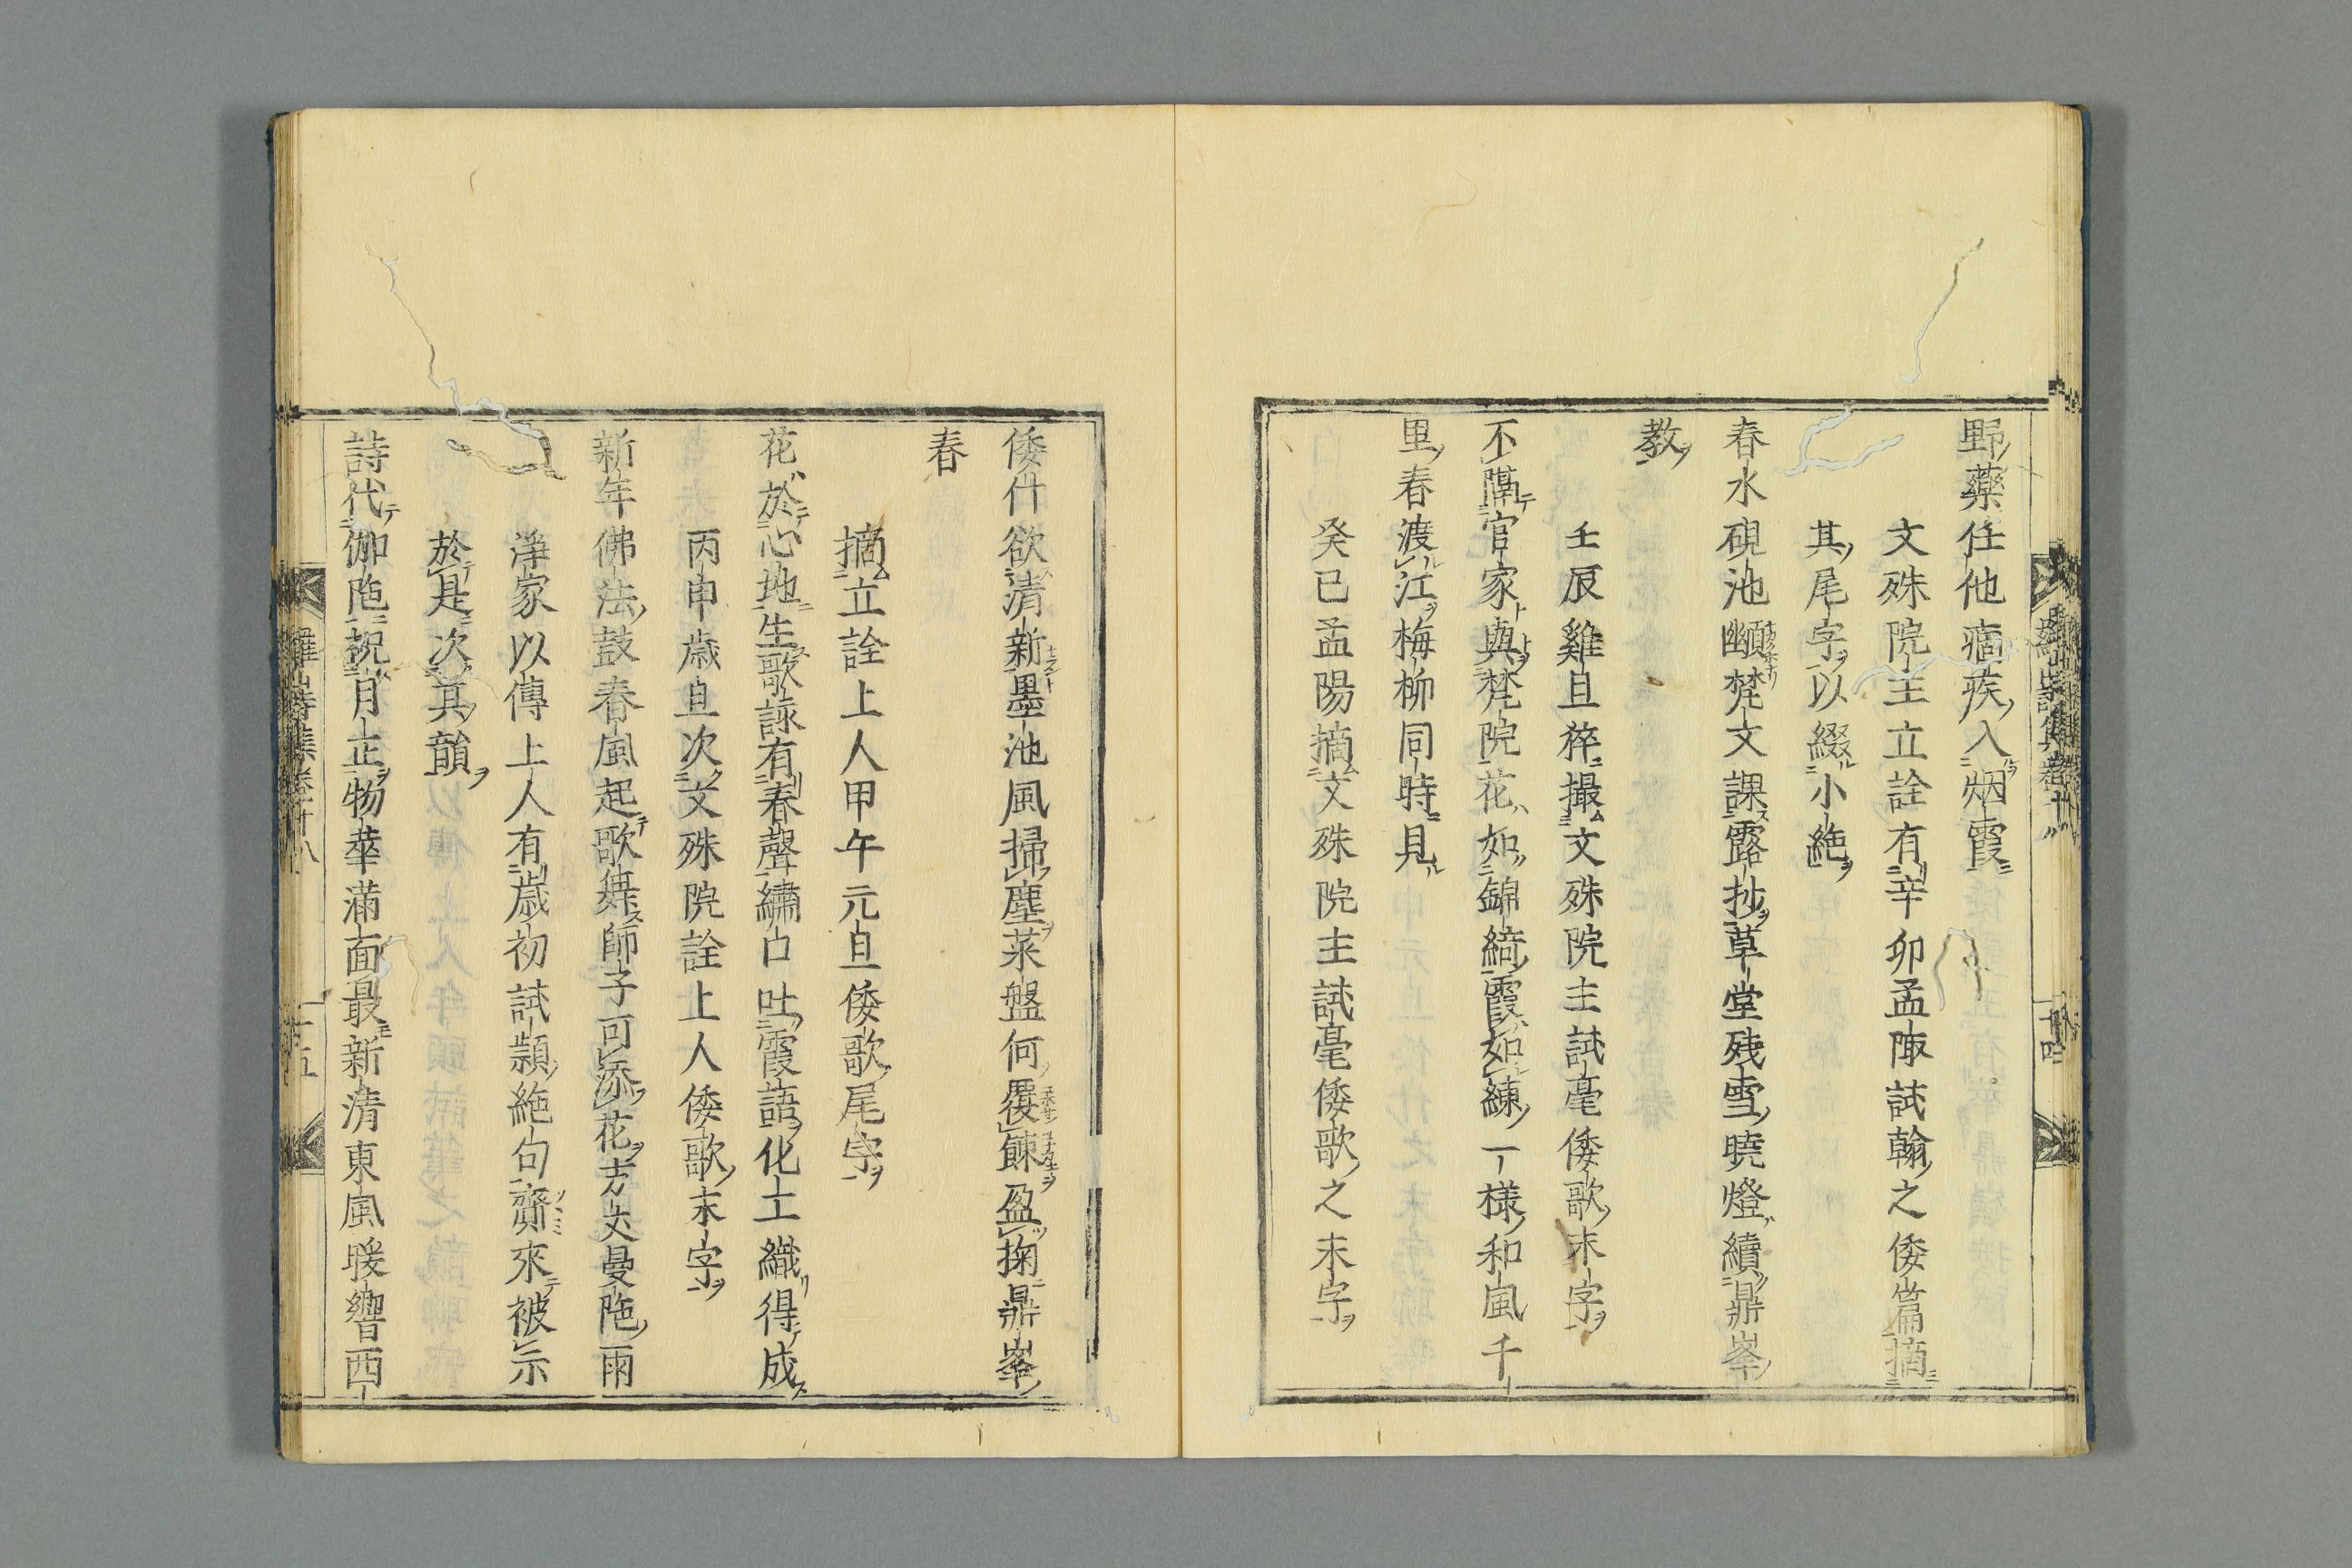 野藥任他痼疾入烟霞
文殊院主立詮有辛卯孟陬試翰之倭篇摘
其尾字以綴小絶
春水硯池顪梵文課露抄草堂残雪曉燈續鼎峯
教
壬辰雞旦猝撮文殊院主試毫倭歌末字
不隔官家與梵院花如錦綺霞如練一樣和風千
里春渡江梅柳同時見
癸巳孟陽摘文殊院主試毫倭歌之末字
倭什欲清新墨池風掃塵菜盤何覆餗盈掬鼎峯
春
摘立詮上人甲午元旦倭歌尾字
花於心地生歌詠有春聲繡口吐霞語化工織得成
丙申歳旦次文殊院詮上人倭歌末字
新年佛法鼓春風起歌舞師子可添花方丈曼陁雨
淨家以傳上人有歳初試穎絶句齎來被示
於是次其韻
詩代伽陁祝月正物華滿面最新清東風暖響西
羅山詩集卷三十八
二十五